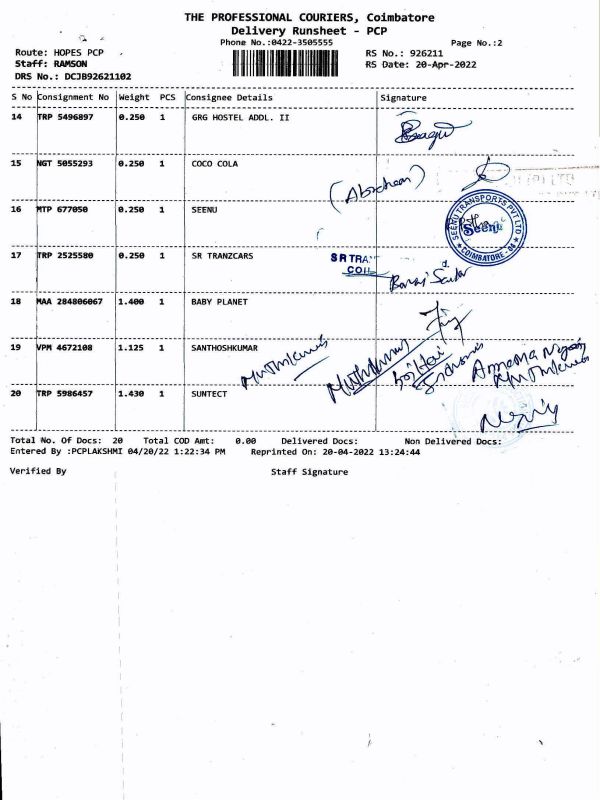 THE PROFESSIONAL COURIERS, Coimbatore
Delivery Runsheet - PCP
Phone No.:0422-3505555
Page No.:2
Route: HOPES PCP
RS No.: 926211
Staff: RAMSON
RS Date: 20-Apr-2022
DRS No.: DCJB92621102
S No Consignment No Weight PCS Consignee Details Signature
14 TRP 5496897 0.250 1 GRG HOSTEL ADDL. II
15 NGT 5055293 0.250 1 COCO COLA
16 MTP 677050 0.250 1 SEENU
SEENU TRANSPORTS PVT LTD
COIMBATORE
17 TRP 2525580 0.250 1 SR TRANZCARS
SR TRA
COI
18 MAA 284806067 1.400 1 BABY PLANET
19 VPM 4672108 1.125 1 SANTHOSHKUMAR
20 TRP 5986457 1.430 1 SUNTECT
Total No. Of Docs: 20 Total COD Amt: 0.00 Delivered Docs: Non Delivered Docs:
Entered By :PCPLAKSHMI 04/20/22 1:22:34 PM Reprinted On: 20-04-2022 13:24:44
Verified By Staff Signature